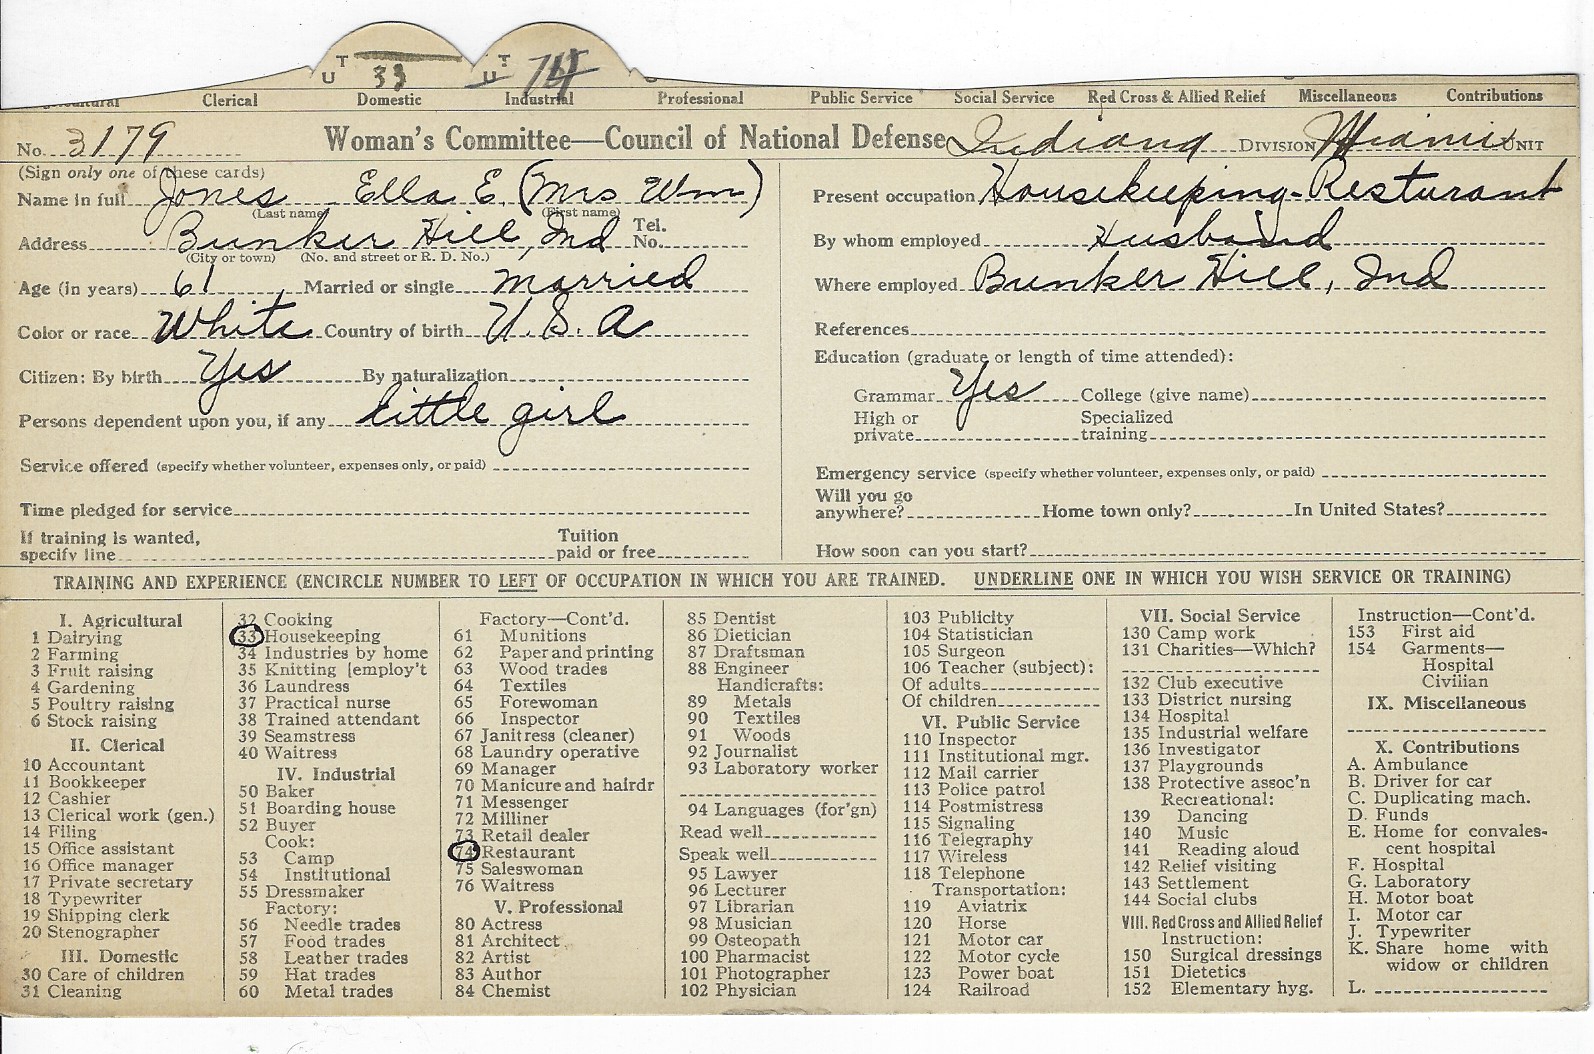 T T
U 33 U 74
Clerical Domestic Industrial Professional Public Service Social Service Red Cross & Allied Relief Miscellaneous Contributions
No. 3179 Woman's Committee—Council of National Defense Indiana DIVISION Miami UNIT
(Sign only one of these cards)
Name in full Jones Ella E (Mrs Wm)
(Last name) (First name)
Address Bunker Hill, Ind Tel. No.
(City or town) (No. and street or R. D. No.)
Age (in years) 61 Married or single married
Color or race White Country of birth U. S. A
Citizen: By birth Yes By naturalization
Persons dependent upon you, if any little girl
Service offered (specify whether volunteer, expenses only, or paid)
Time pledged for service
If training is wanted, specify line Tuition paid or free
Present occupation Housekeeping-Resturant
By whom employed Husband
Where employed Bunker Hill, Ind
References
Education (graduate or length of time attended):
Grammar Yes College (give name)
High or private Specialized training
Emergency service (specify whether volunteer, expenses only, or paid)
Will you go anywhere? Home town only? In United States?
How soon can you start?
TRAINING AND EXPERIENCE (ENCIRCLE NUMBER TO LEFT OF OCCUPATION IN WHICH YOU ARE TRAINED. UNDERLINE ONE IN WHICH YOU WISH SERVICE OR TRAINING)
I. Agricultural
1 Dairying
2 Farming
3 Fruit raising
4 Gardening
5 Poultry raising
6 Stock raising
II. Clerical
10 Accountant
11 Bookkeeper
12 Cashier
13 Clerical work (gen.)
14 Filing
15 Office assistant
16 Office manager
17 Private secretary
18 Typewriter
19 Shipping clerk
20 Stenographer
III. Domestic
30 Care of children
31 Cleaning
32 Cooking
33 Housekeeping
34 Industries by home
35 Knitting [employ't
36 Laundress
37 Practical nurse
38 Trained attendant
39 Seamstress
40 Waitress
IV. Industrial
50 Baker
51 Boarding house
52 Buyer
Cook:
53 Camp
54 Institutional
55 Dressmaker
Factory:
56 Needle trades
57 Food trades
58 Leather trades
59 Hat trades
60 Metal trades
Factory—Cont'd.
61 Munitions
62 Paper and printing
63 Wood trades
64 Textiles
65 Forewoman
66 Inspector
67 Janitress (cleaner)
68 Laundry operative
69 Manager
70 Manicure and hairdr
71 Messenger
72 Milliner
73 Retail dealer
74 Restaurant
75 Saleswoman
76 Waitress
V. Professional
80 Actress
81 Architect
82 Artist
83 Author
84 Chemist
85 Dentist
86 Dietician
87 Draftsman
88 Engineer
Handicrafts:
89 Metals
90 Textiles
91 Woods
92 Journalist
93 Laboratory worker
94 Languages (for'gn)
Read well
Speak well
95 Lawyer
96 Lecturer
97 Librarian
98 Musician
99 Osteopath
100 Pharmacist
101 Photographer
102 Physician
103 Publicity
104 Statistician
105 Surgeon
106 Teacher (subject):
Of adults
Of children
VI. Public Service
110 Inspector
111 Institutional mgr.
112 Mail carrier
113 Police patrol
114 Postmistress
115 Signaling
116 Telegraphy
117 Wireless
118 Telephone
Transportation:
119 Aviatrix
120 Horse
121 Motor car
122 Motor cycle
123 Power boat
124 Railroad
VII. Social Service
130 Camp work
131 Charities—Which?
132 Club executive
133 District nursing
134 Hospital
135 Industrial welfare
136 Investigator
137 Playgrounds
138 Protective assoc'n
Recreational:
139 Dancing
140 Music
141 Reading aloud
142 Relief visiting
143 Settlement
144 Social clubs
VIII. Red Cross and Allied Relief
Instruction:
150 Surgical dressings
151 Dietetics
152 Elementary hyg.
Instruction—Cont'd.
153 First aid
154 Garments—
Hospital
Civilian
IX. Miscellaneous
X. Contributions
A. Ambulance
B. Driver for car
C. Duplicating mach.
D. Funds
E. Home for convales-
cent hospital
F. Hospital
G. Laboratory
H. Motor boat
I. Motor car
J. Typewriter
K. Share home with
widow or children
L.